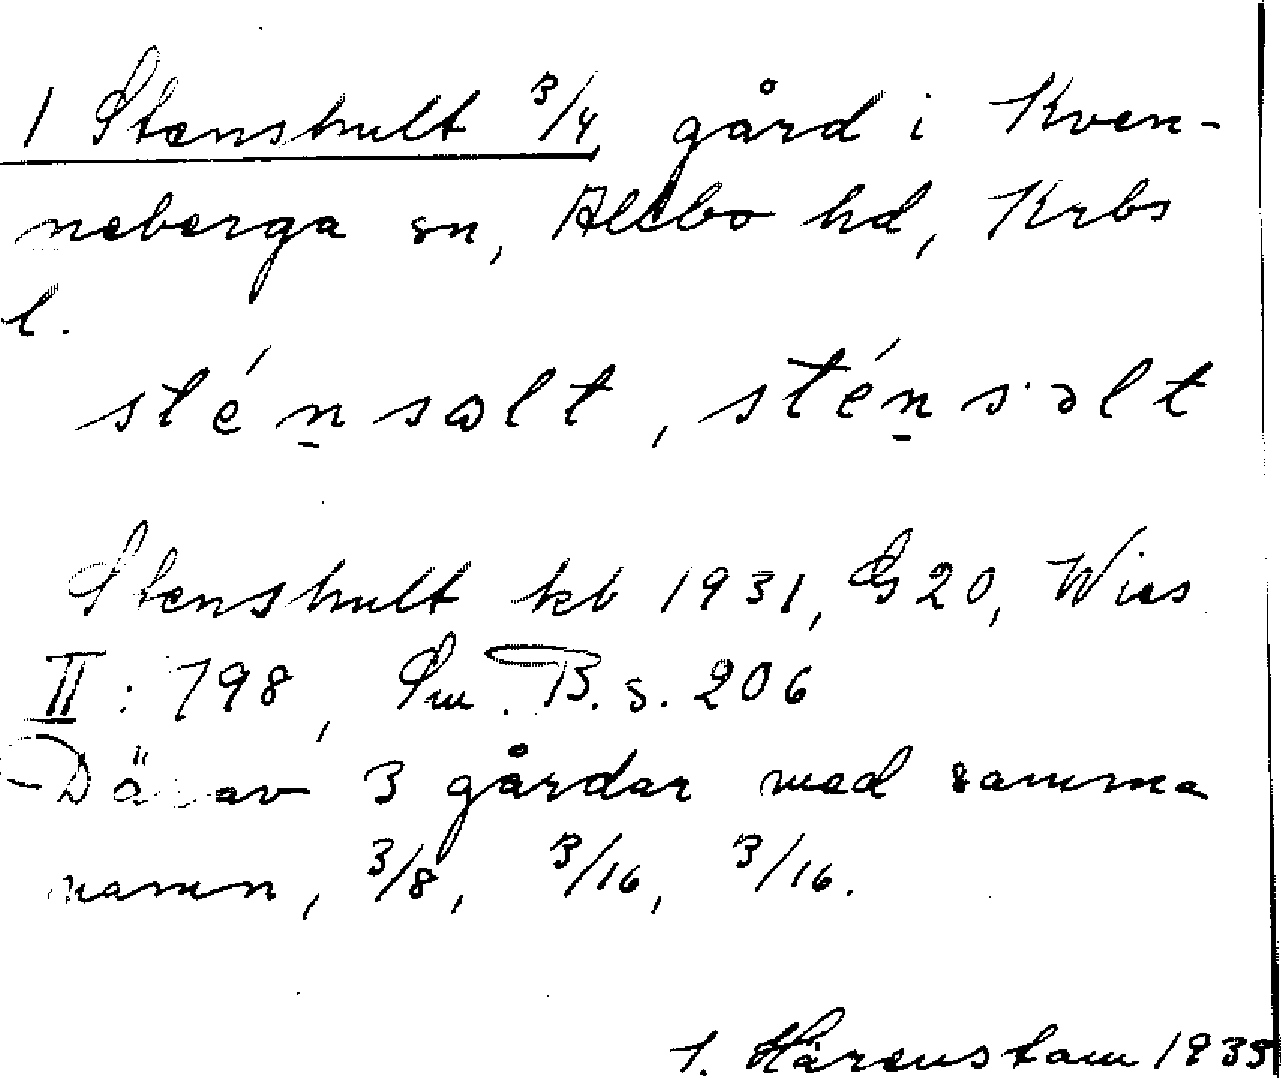 1 Stenshult 3/4 gård i Kven-
neberga sn, Allbo hd, Krbs
l.
sténsɷlt, sténsəlt
Stenshult kb 1931, GS 20, Wies
II: 798, Sm. B. s. 206
Därav 3 gårdar med samma
namn, 3/8, 3/16, 3/16.
Härenstam 1935